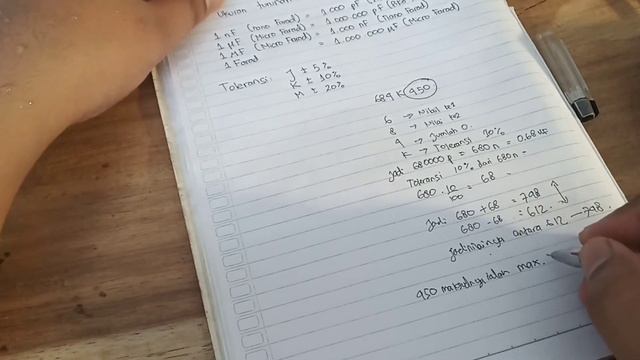 Ukuran turunan
1 nF (Nano Farad) = 1.000 pF
1 µF (Micro Farad) = 1.000 000 pF
1 µF (Micro Farad) = 1.000 nF (Nano Farad)
1 Farad = 1.000 000 µF (Micro Farad)
Toleransi: J ± 5%
K ± 10%
M ± 20%
684 K 450
6 → Nilai ke1
8 → Nilai ke2
4 → Jumlah 0.
K → Toleransi 10%
Jadi 680000 p = 680 n = 0.68 uF
Toleransi 10% dari 680n =
680 . 10/100 = 68
Jadi 680 + 68 = 748
680 - 68 = 612.
Jadi nilainya antara 612 — 748.
450 maksudnya ialah max.